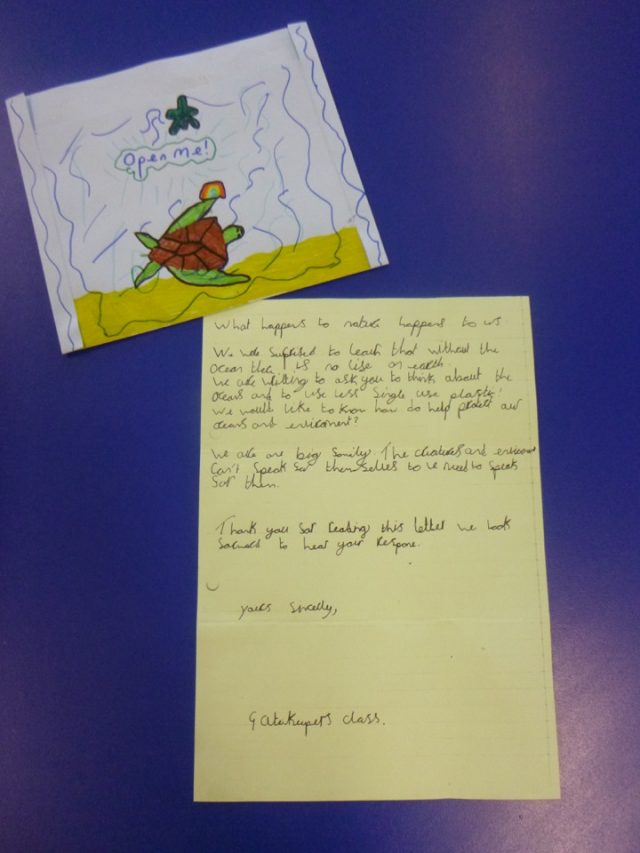 Open Me!
What happens to nature happens to us
We were suprised to leach that without the
ocean ther is no lise on earth
We are writting to ask you to think about the
oceans and to use less single use plastic!
We would like to know how do help protect our
oceans and enviroment?
We are one big Samily. The creatures and
Can't Speak Sor themselves so we need to speak
Sor them.
Thank you Sor reading this letter we look
Sorward to hear your respone.
yours Sincelly,
Gatekeepers class.